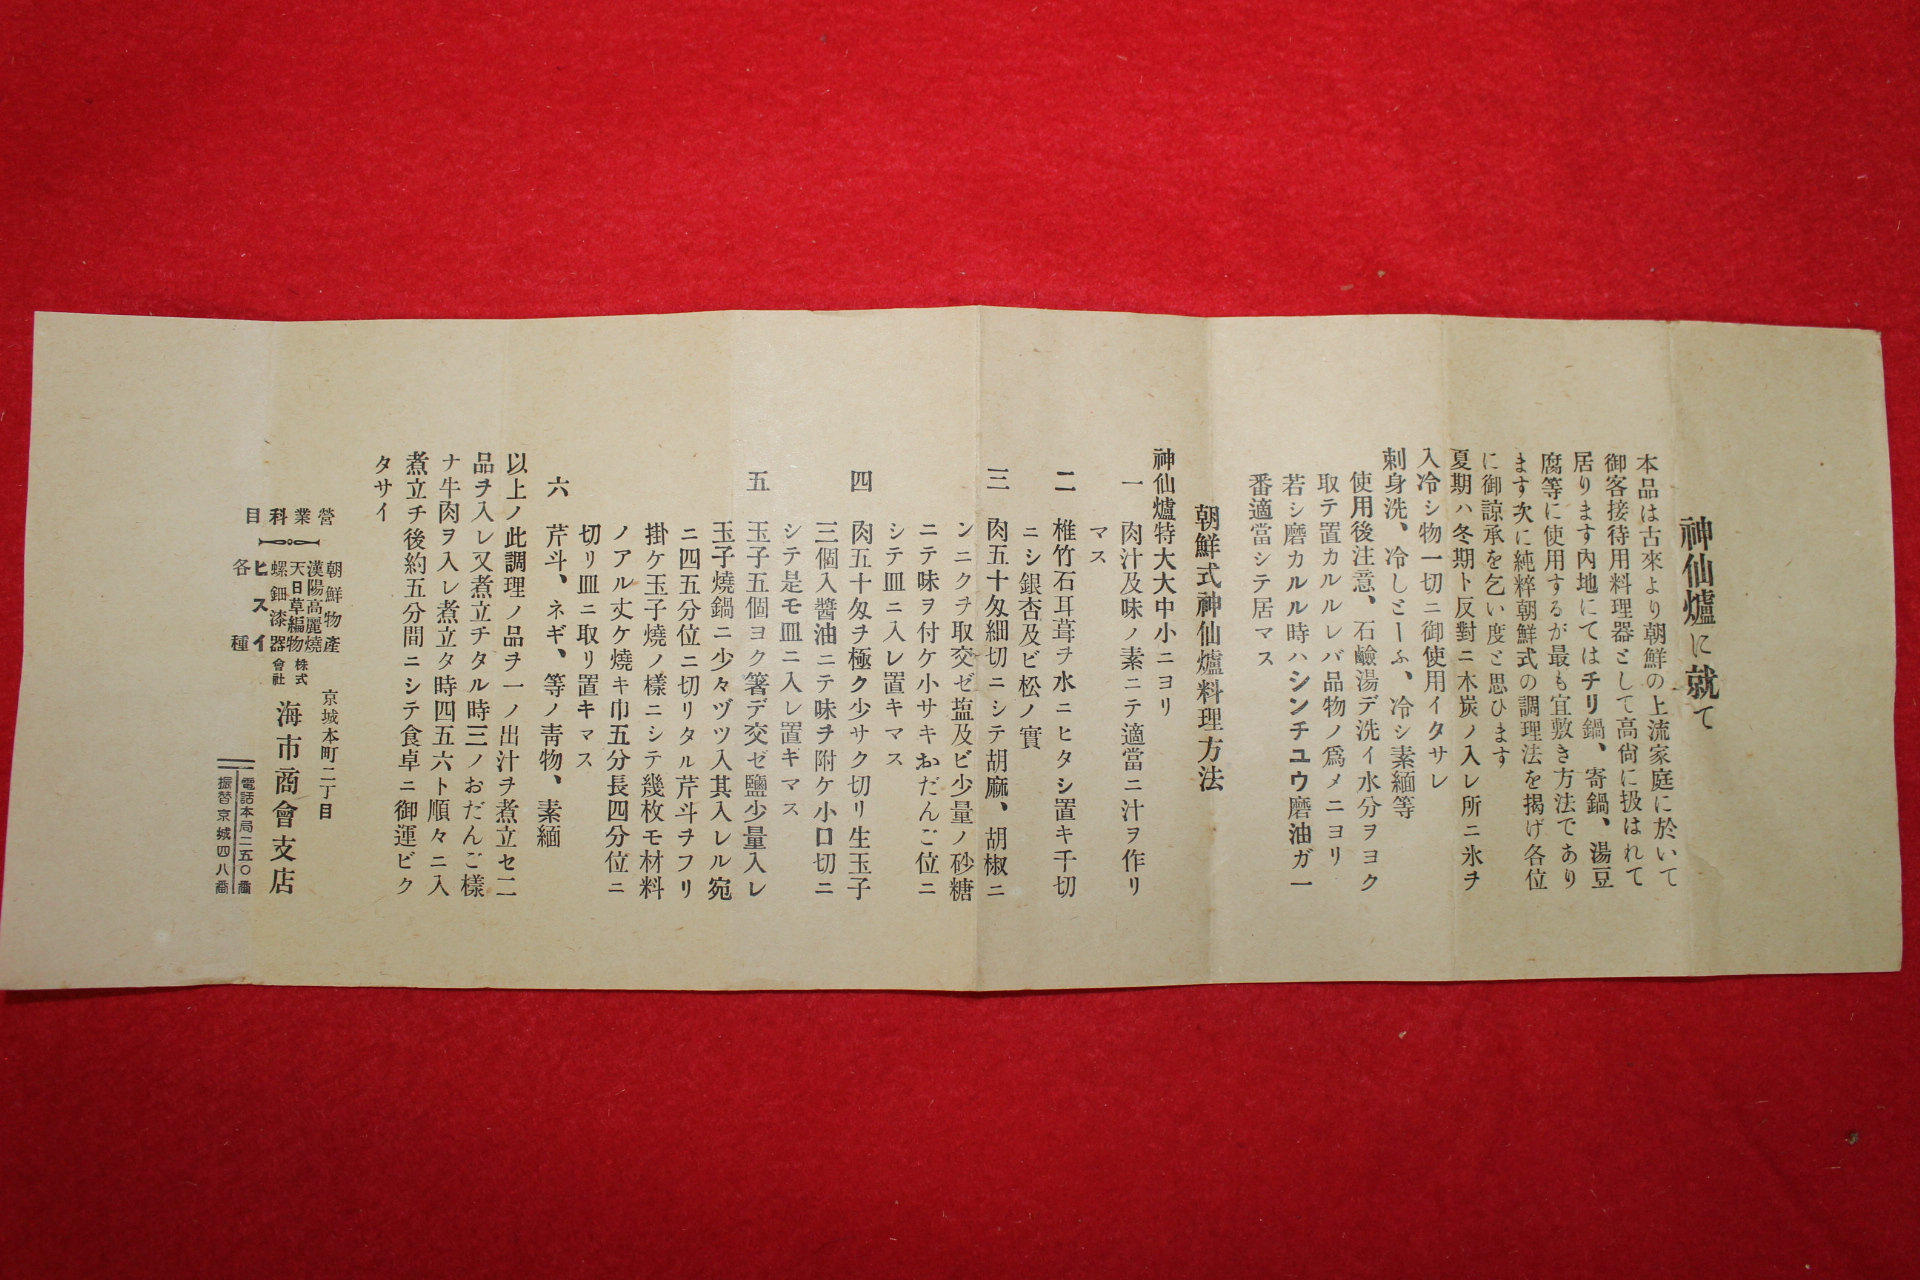 神仙爐に就て
本品は古來より朝鮮の上流家庭に於いて
御客接待用料理器として高尙に扱はれて
居ります內地にてはチリ鍋、寄鍋、湯豆
腐等に使用するが最も宜敷き方法であり
ます次に純粹朝鮮式の調理法を揭げ各位
に御諒承を乞い度と思ひます
夏期ハ冬期ト反對ニ木炭ノ入レ所ニ氷ヲ
入冷シ物一切ニ御使用イタサレ
刺身洗、冷しとーふ、冷シ素緬等
使用後注意、石鹼湯デ洗イ水分ヲヨク
取テ置カルルレバ品物ノ爲メニヨリ
若シ磨カルル時ハシンチユウ磨油ガ一
番適當シテ居マス
朝鮮式神仙爐料理方法
神仙爐特大大中小ニヨリ
一 肉汁及味ノ素ニテ適當ニ汁ヲ作リ
マス
二 椎竹石耳茸ヲ水ニヒタシ置キ千切
ニシ銀杏及ビ松ノ實
三 肉五十匁細切ニシテ胡麻、胡椒ニ
ンニクヲ取交ゼ塩及ビ少量ノ砂糖
ニテ味ヲ付ケ小サキおだんご位ニ
シテ皿ニ入レ置キマス
四 肉五十匁ヲ極ク少サク切リ生玉子
三個入醬油ニテ味ヲ附ケ小口切ニ
シテ是モ皿ニ入レ置キマス
五 玉子五個ヨク箸デ交ゼ鹽少量入レ
玉子燒鍋ニ少々ヅツ入其入レル宛
ニ四五分位ニ切リタル芹斗ヲフリ
掛ケ玉子燒ノ樣ニシテ幾枚モ材料
ノアル丈ケ燒キ巾五分長四分位ニ
切リ皿ニ取リ置キマス
六 芹斗、ネギ、等ノ靑物、素緬
以上ノ此調理ノ品ヲ一ノ出汁ヲ煮立セ二
品ヲ入レ又煮立チタル時三ノおだんご樣
ナ牛肉ヲ入レ煮立タ時四五六ト順々ニ入
煮立チ後約五分間ニシテ食卓ニ御運ビク
タサイ
營業科目
朝鮮物產
漢陽高麗燒
天日草編物
螺鈿漆器
ヒスイ
各種
京城本町二丁目
株式會社 海市商會支店
電話本局二五〇番
振替京城四八番